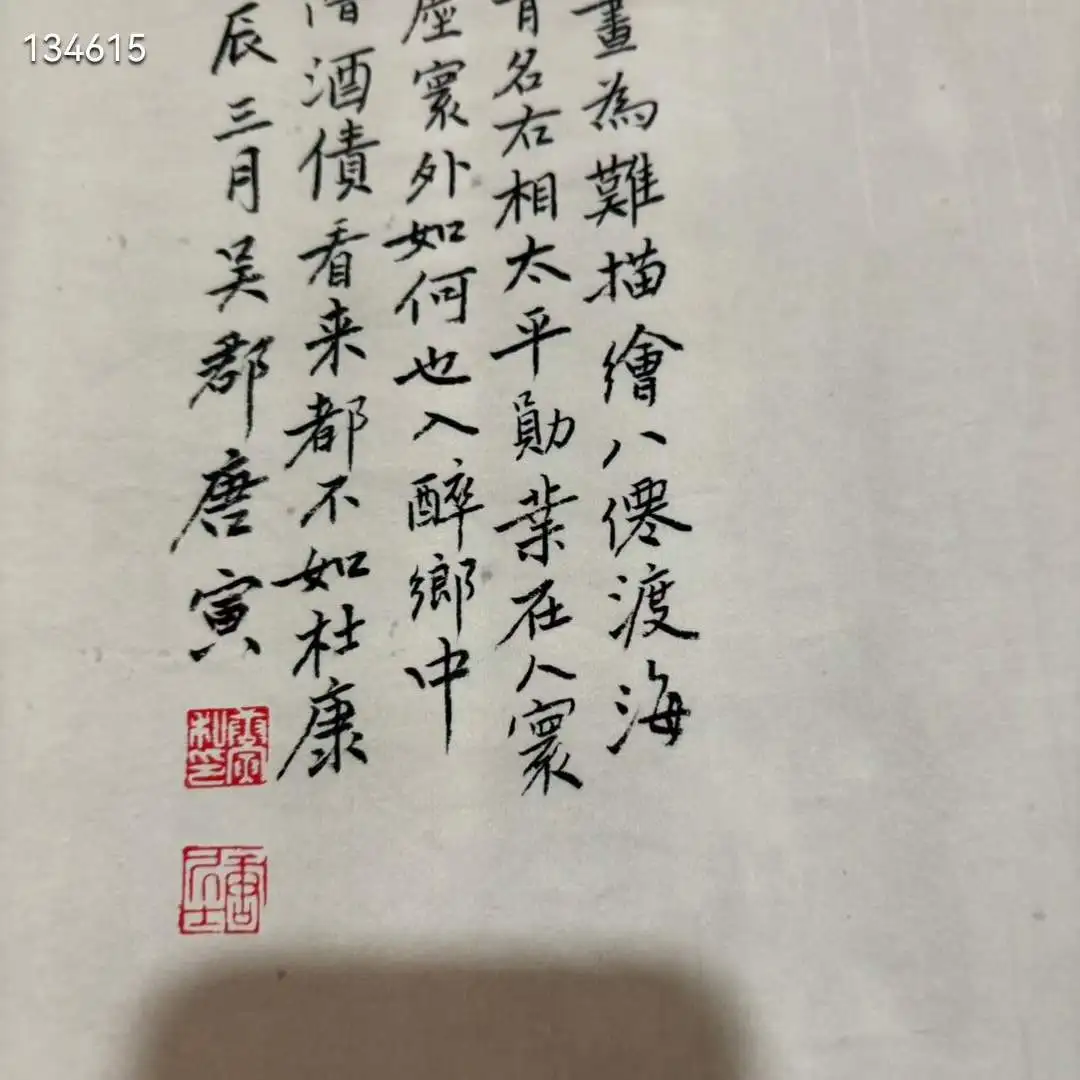 134615
畫為難描繪八僊渡海
名右相太平勛業在人寰
塵寰外如何也入醉鄉中
酒債看来都不如杜康
辰三月吳郡唐寅
唐寅私印